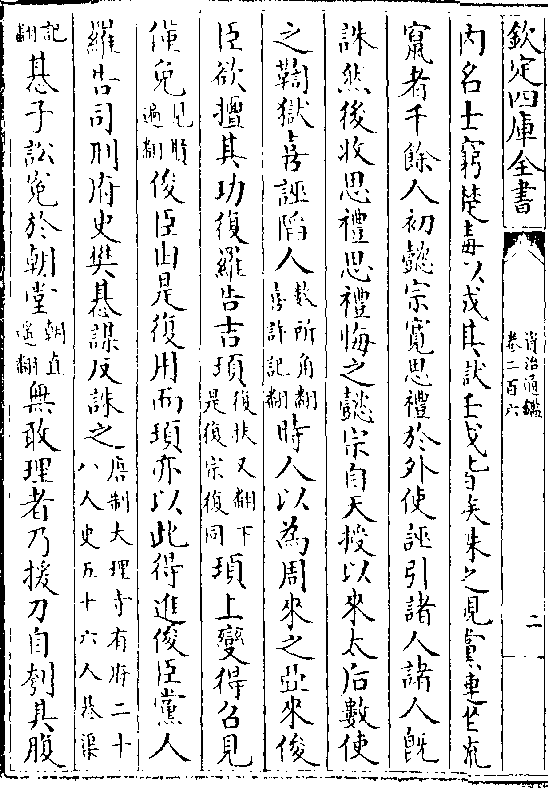 欽定四庫全書
資治通鑑
卷二百六
二
內名士窮楚毒以成其獄壬戌皆族誅之親黨連坐流
竄者千餘人初懿宗寛思禮於外使誣引諸人諸人旣
誅然後收思禮思禮悔之懿宗自天授以來太后數使
之鞫獄喜誣陷人數所角翻喜許記翻時人以為周來之亞來俊
臣欲擅其功復羅告吉頊復扶又翻下是復宗復同頊上變得召見
僅免見賢遍翻俊臣由是復用而頊亦以此得進俊臣黨人
羅告司刑府史樊惎謀反誅之唐制大理寺有府二十八人史五十六人惎渠
記翻惎子訟寃於朝堂朝直遥翻無敢理者乃援刀自刳其腹